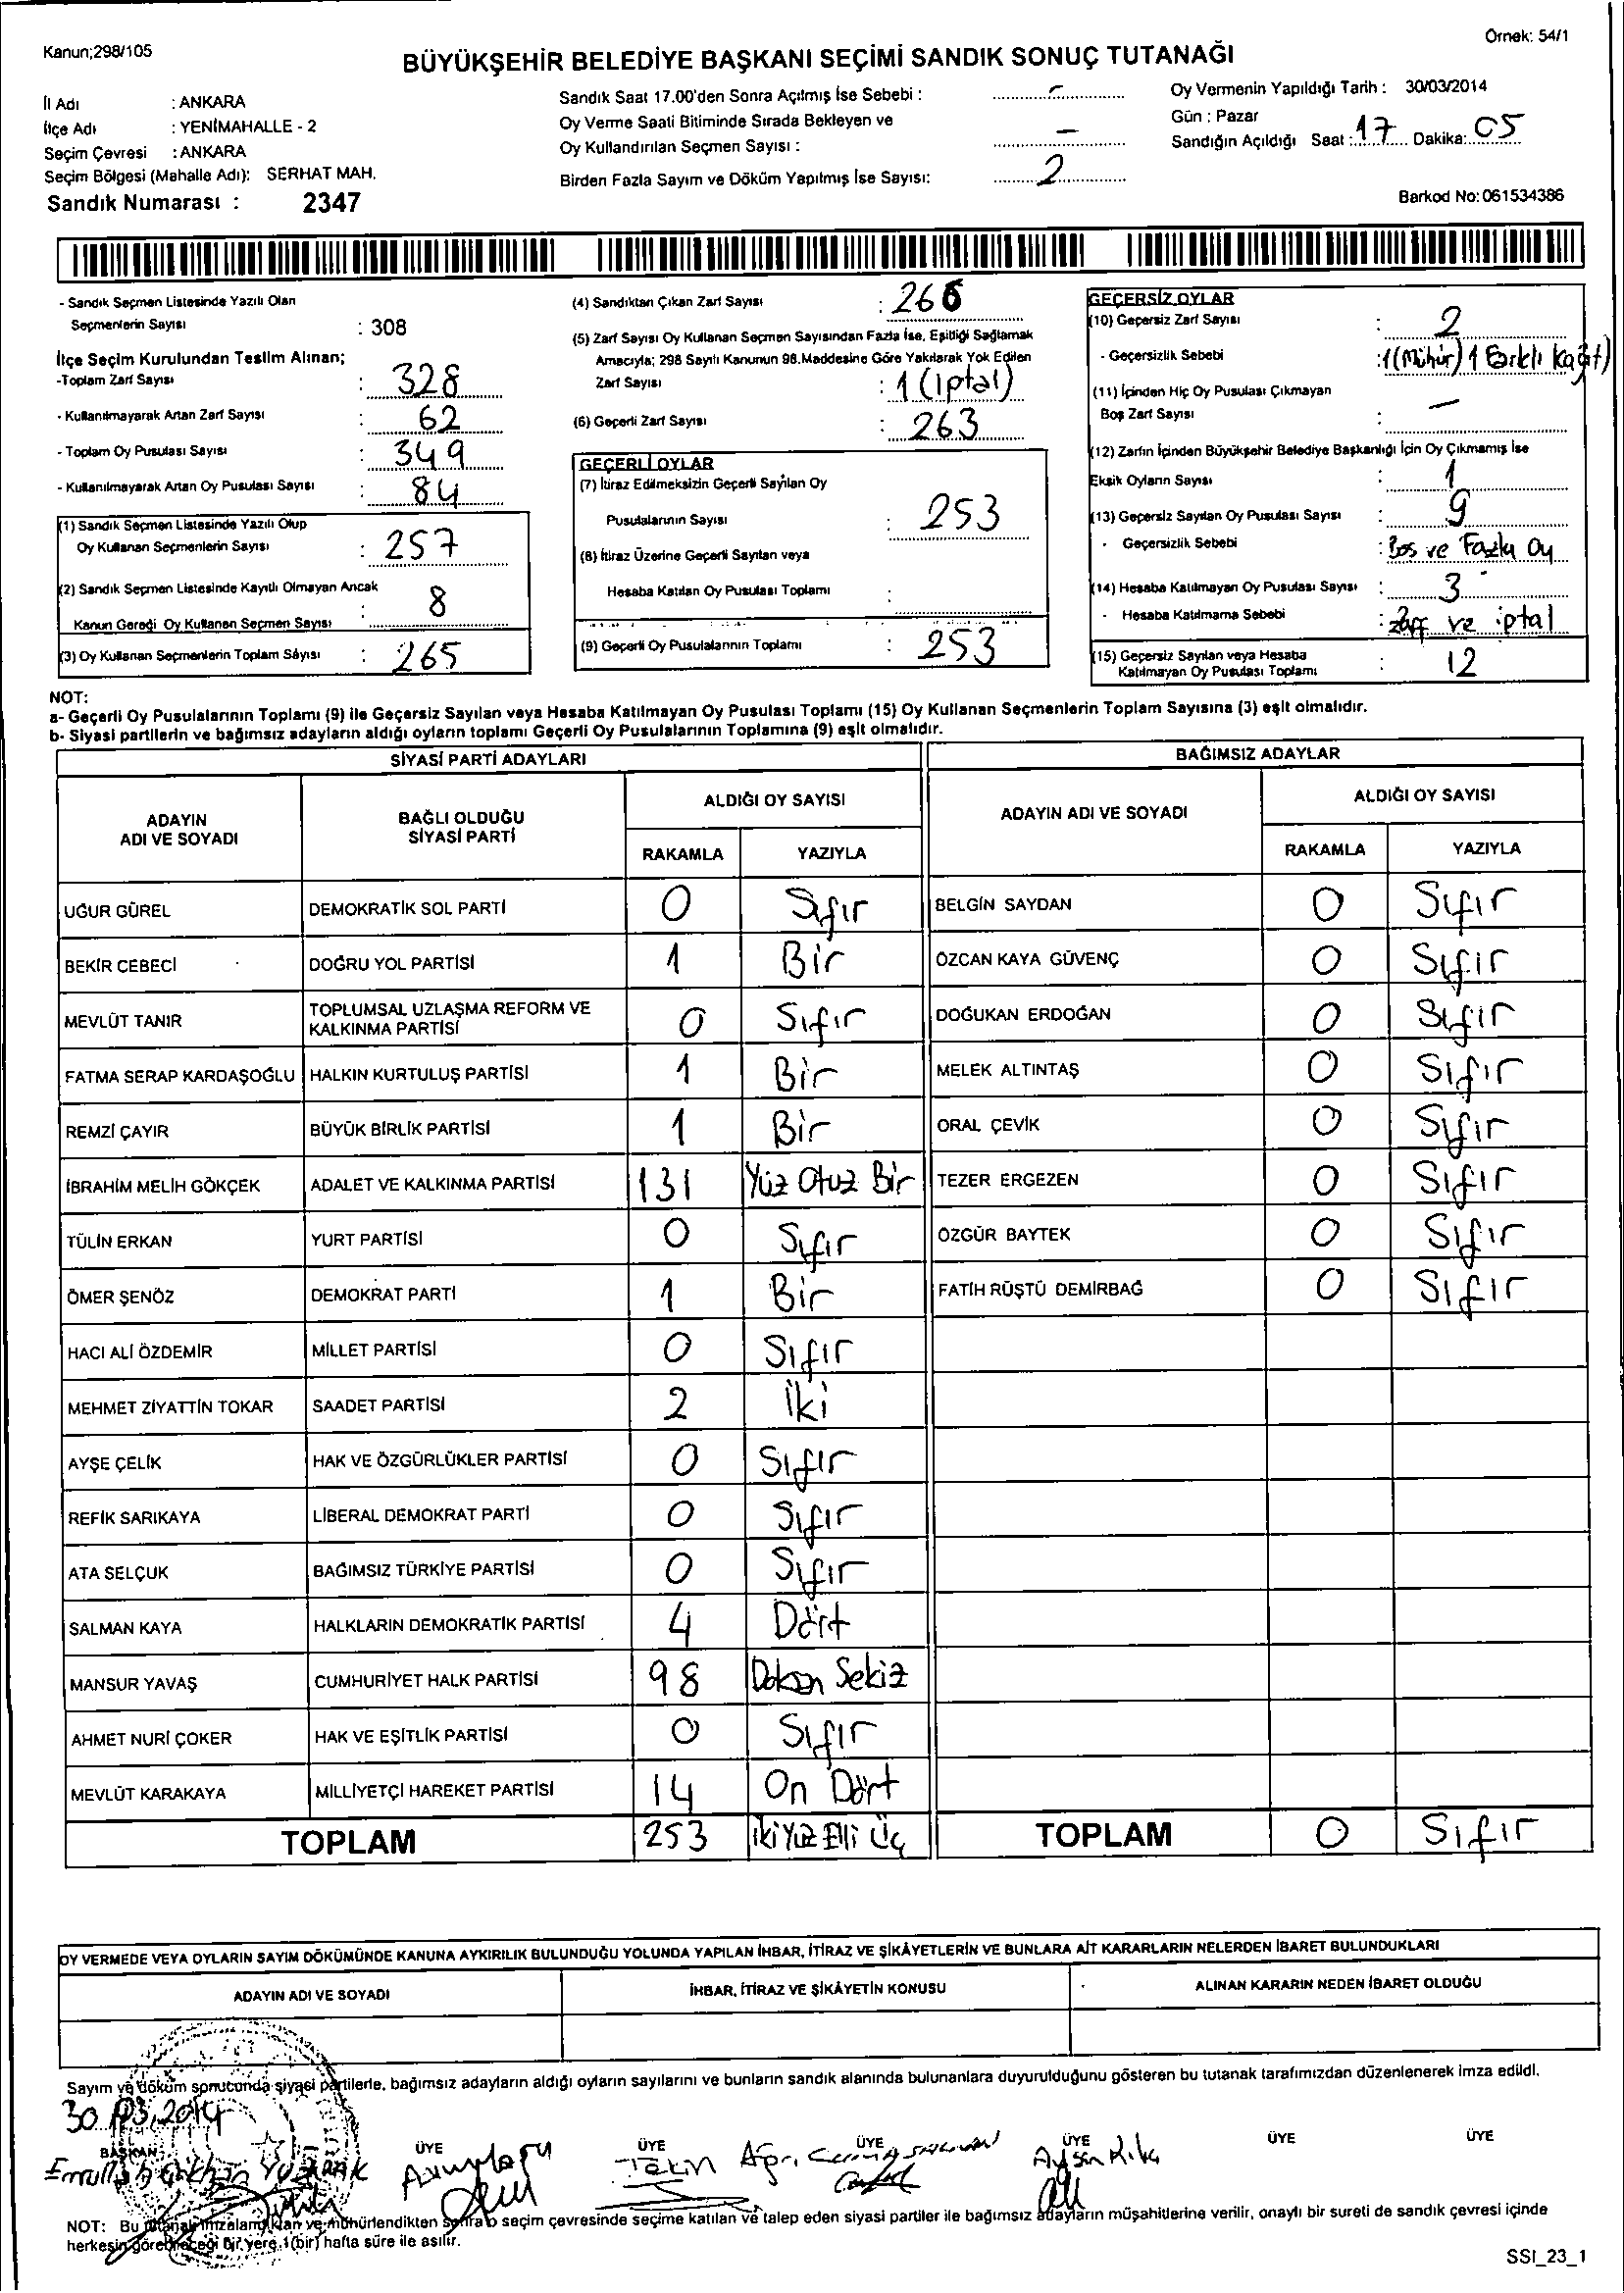 Kanun;298/105
Örnek: 54/1
BÜYÜKŞEHİR BELEDİYE BAŞKANI SEÇİMİ SANDIK SONUÇ TUTANAĞI
İl Adı : ANKARA
İlçe Adı : YENİMAHALLE - 2
Seçim Çevresi : ANKARA
Seçim Bölgesi (Mahalle Adı): SERHAT MAH.
Sandık Numarası : 2347
Sandık Saat 17.00'den Sonra Açılmış İse Sebebi : -
Oy Verme Saati Bitiminde Sırada Bekleyen ve
Oy Kullandırılan Seçmen Sayısı : -
Birden Fazla Sayım ve Döküm Yapılmış İse Sayısı: 2
Oy Vermenin Yapıldığı Tarih : 30/03/2014
Gün : Pazar
Sandığın Açıldığı Saat : 17 Dakika: 05
Barkod No: 061534386
- Sandık Seçmen Listesinde Yazılı Olan
Seçmenlerin Sayısı : 308
İlçe Seçim Kurulundan Teslim Alınan;
-Toplam Zarf Sayısı : 328
- Kullanılmayarak Artan Zarf Sayısı : 62
- Toplam Oy Pusulası Sayısı : 349
- Kullanılmayarak Artan Oy Pusulası Sayısı : 84
(1) Sandık Seçmen Listesinde Yazılı Olup
Oy Kullanan Seçmenlerin Sayısı : 257
(2) Sandık Seçmen Listesinde Kayıtlı Olmayan Ancak
Kanun Gereği Oy Kullanan Seçmen Sayısı : 8
(3) Oy Kullanan Seçmenlerin Toplam Sayısı : 265
(4) Sandıktan Çıkan Zarf Sayısı : 266
(5) Zarf Sayısı Oy Kullanan Seçmen Sayısından Fazla İse, Eşitliği Sağlamak
Amacıyla; 298 Sayılı Kanunun 98.Maddesine Göre Yakılarak Yok Edilen
Zarf Sayısı : 1 (İptal)
(6) Geçerli Zarf Sayısı : 263
GEÇERLİ OYLAR
(7) İtiraz Edilmeksizin Geçerli Sayılan Oy
Pusulalarının Sayısı : 253
(8) İtiraz Üzerine Geçerli Sayılan veya
Hesaba Katılan Oy Pusulası Toplamı :
(9) Geçerli Oy Pusulalarının Toplamı : 253
GEÇERSİZ OYLAR
(10) Geçersiz Zarf Sayısı : 2
- Geçersizlik Sebebi : 1 (Mühür) 1 Farklı Kağıt)
(11) İçinden Hiç Oy Pusulası Çıkmayan
Boş Zarf Sayısı : -
(12) Zarfın İçinden Büyükşehir Belediye Başkanlığı İçin Oy Çıkmamış İse
Eksik Oyların Sayısı : 1
(13) Geçersiz Sayılan Oy Pusulası Sayısı : 9
- Geçersizlik Sebebi : Boş ve Fazla Oy
(14) Hesaba Katılmayan Oy Pusulası Sayısı : 3
- Hesaba Katılmama Sebebi : zarf ve iptal
(15) Geçersiz Sayılan veya Hesaba
Katılmayan Oy Pusulası Toplamı : 12
NOT:
a- Geçerli Oy Pusulalarının Toplamı (9) ile Geçersiz Sayılan veya Hesaba Katılmayan Oy Pusulası Toplamı (15) Oy Kullanan Seçmenlerin Toplam Sayısına (3) eşit olmalıdır.
b- Siyasi partilerin ve bağımsız adayların aldığı oyların toplamı Geçerli Oy Pusulalarının Toplamına (9) eşit olmalıdır.
SİYASİ PARTİ ADAYLARI
ADAYIN ADI VE SOYADI
BAĞLI OLDUĞU SİYASİ PARTİ
ALDIĞI OY SAYISI
RAKAMLA YAZIYLA
UĞUR GÜREL DEMOKRATİK SOL PARTİ 0 Sıfır
BEKİR CEBECİ DOĞRU YOL PARTİSİ 1 Bir
MEVLÜT TANIR TOPLUMSAL UZLAŞMA REFORM VE KALKINMA PARTİSİ 0 Sıfır
FATMA SERAP KARDAŞOĞLU HALKIN KURTULUŞ PARTİSİ 1 Bir
REMZİ ÇAYIR BÜYÜK BİRLİK PARTİSİ 1 Bir
İBRAHİM MELİH GÖKÇEK ADALET VE KALKINMA PARTİSİ 131 Yüz Otuz Bir
TÜLİN ERKAN YURT PARTİSİ 0 Sıfır
ÖMER ŞENÖZ DEMOKRAT PARTİ 1 Bir
HACI ALİ ÖZDEMİR MİLLET PARTİSİ 0 Sıfır
MEHMET ZİYATTİN TOKAR SAADET PARTİSİ 2 İki
AYŞE ÇELİK HAK VE ÖZGÜRLÜKLER PARTİSİ 0 Sıfır
REFİK SARIKAYA LİBERAL DEMOKRAT PARTİ 0 Sıfır
ATA SELÇUK BAĞIMSIZ TÜRKİYE PARTİSİ 0 Sıfır
SALMAN KAYA HALKLARIN DEMOKRATİK PARTİSİ 4 Dört
MANSUR YAVAŞ CUMHURİYET HALK PARTİSİ 98 Doksan Sekiz
AHMET NURİ ÇOKER HAK VE EŞİTLİK PARTİSİ 0 Sıfır
MEVLÜT KARAKAYA MİLLİYETÇİ HAREKET PARTİSİ 14 On Dört
TOPLAM 253 İki Yüz Elli Üç
BAĞIMSIZ ADAYLAR
ADAYIN ADI VE SOYADI
ALDIĞI OY SAYISI
RAKAMLA YAZIYLA
BELGİN SAYDAN 0 Sıfır
ÖZCAN KAYA GÜVENÇ 0 Sıfır
DOĞUKAN ERDOĞAN 0 Sıfır
MELEK ALTINTAŞ 0 Sıfır
ORAL ÇEVİK 0 Sıfır
TEZER ERGEZEN 0 Sıfır
ÖZGÜR BAYTEK 0 Sıfır
FATİH RÜŞTÜ DEMİRBAĞ 0 Sıfır
TOPLAM 0 Sıfır
OY VERMEDE VEYA OYLARIN SAYIM DÖKÜMÜNDE KANUNA AYKIRILIK BULUNDUĞU YOLUNDA YAPILAN İHBAR, İTİRAZ VE ŞİKÂYETLERİN VE BUNLARA AİT KARARLARIN NELERDEN İBARET BULUNDUKLARI
ADAYIN ADI VE SOYADI
İHBAR, İTİRAZ VE ŞİKÂYETİN KONUSU
ALINAN KARARIN NEDEN İBARET OLDUĞU
Sayım ve döküm sonucunda siyasi partilerle, bağımsız adayların aldığı oyların sayılarını ve bunların sandık alanında bulunanlara duyurulduğunu gösteren bu tutanak tarafımızdan düzenlenerek imza edildi.
30.03.2014
BAŞKAN ÜYE ÜYE ÜYE ÜYE ÜYE ÜYE
NOT: Bu tutanak imzalandıktan ve mühürlendikten sonra o seçim çevresinde seçime katılan ve talep eden siyasi partiler ile bağımsız adayların müşahitlerine verilir, onaylı bir sureti de sandık çevresi içinde
herkesin görebileceği bir yere 1(bir) hafta süre ile asılır.
SSI_23_1